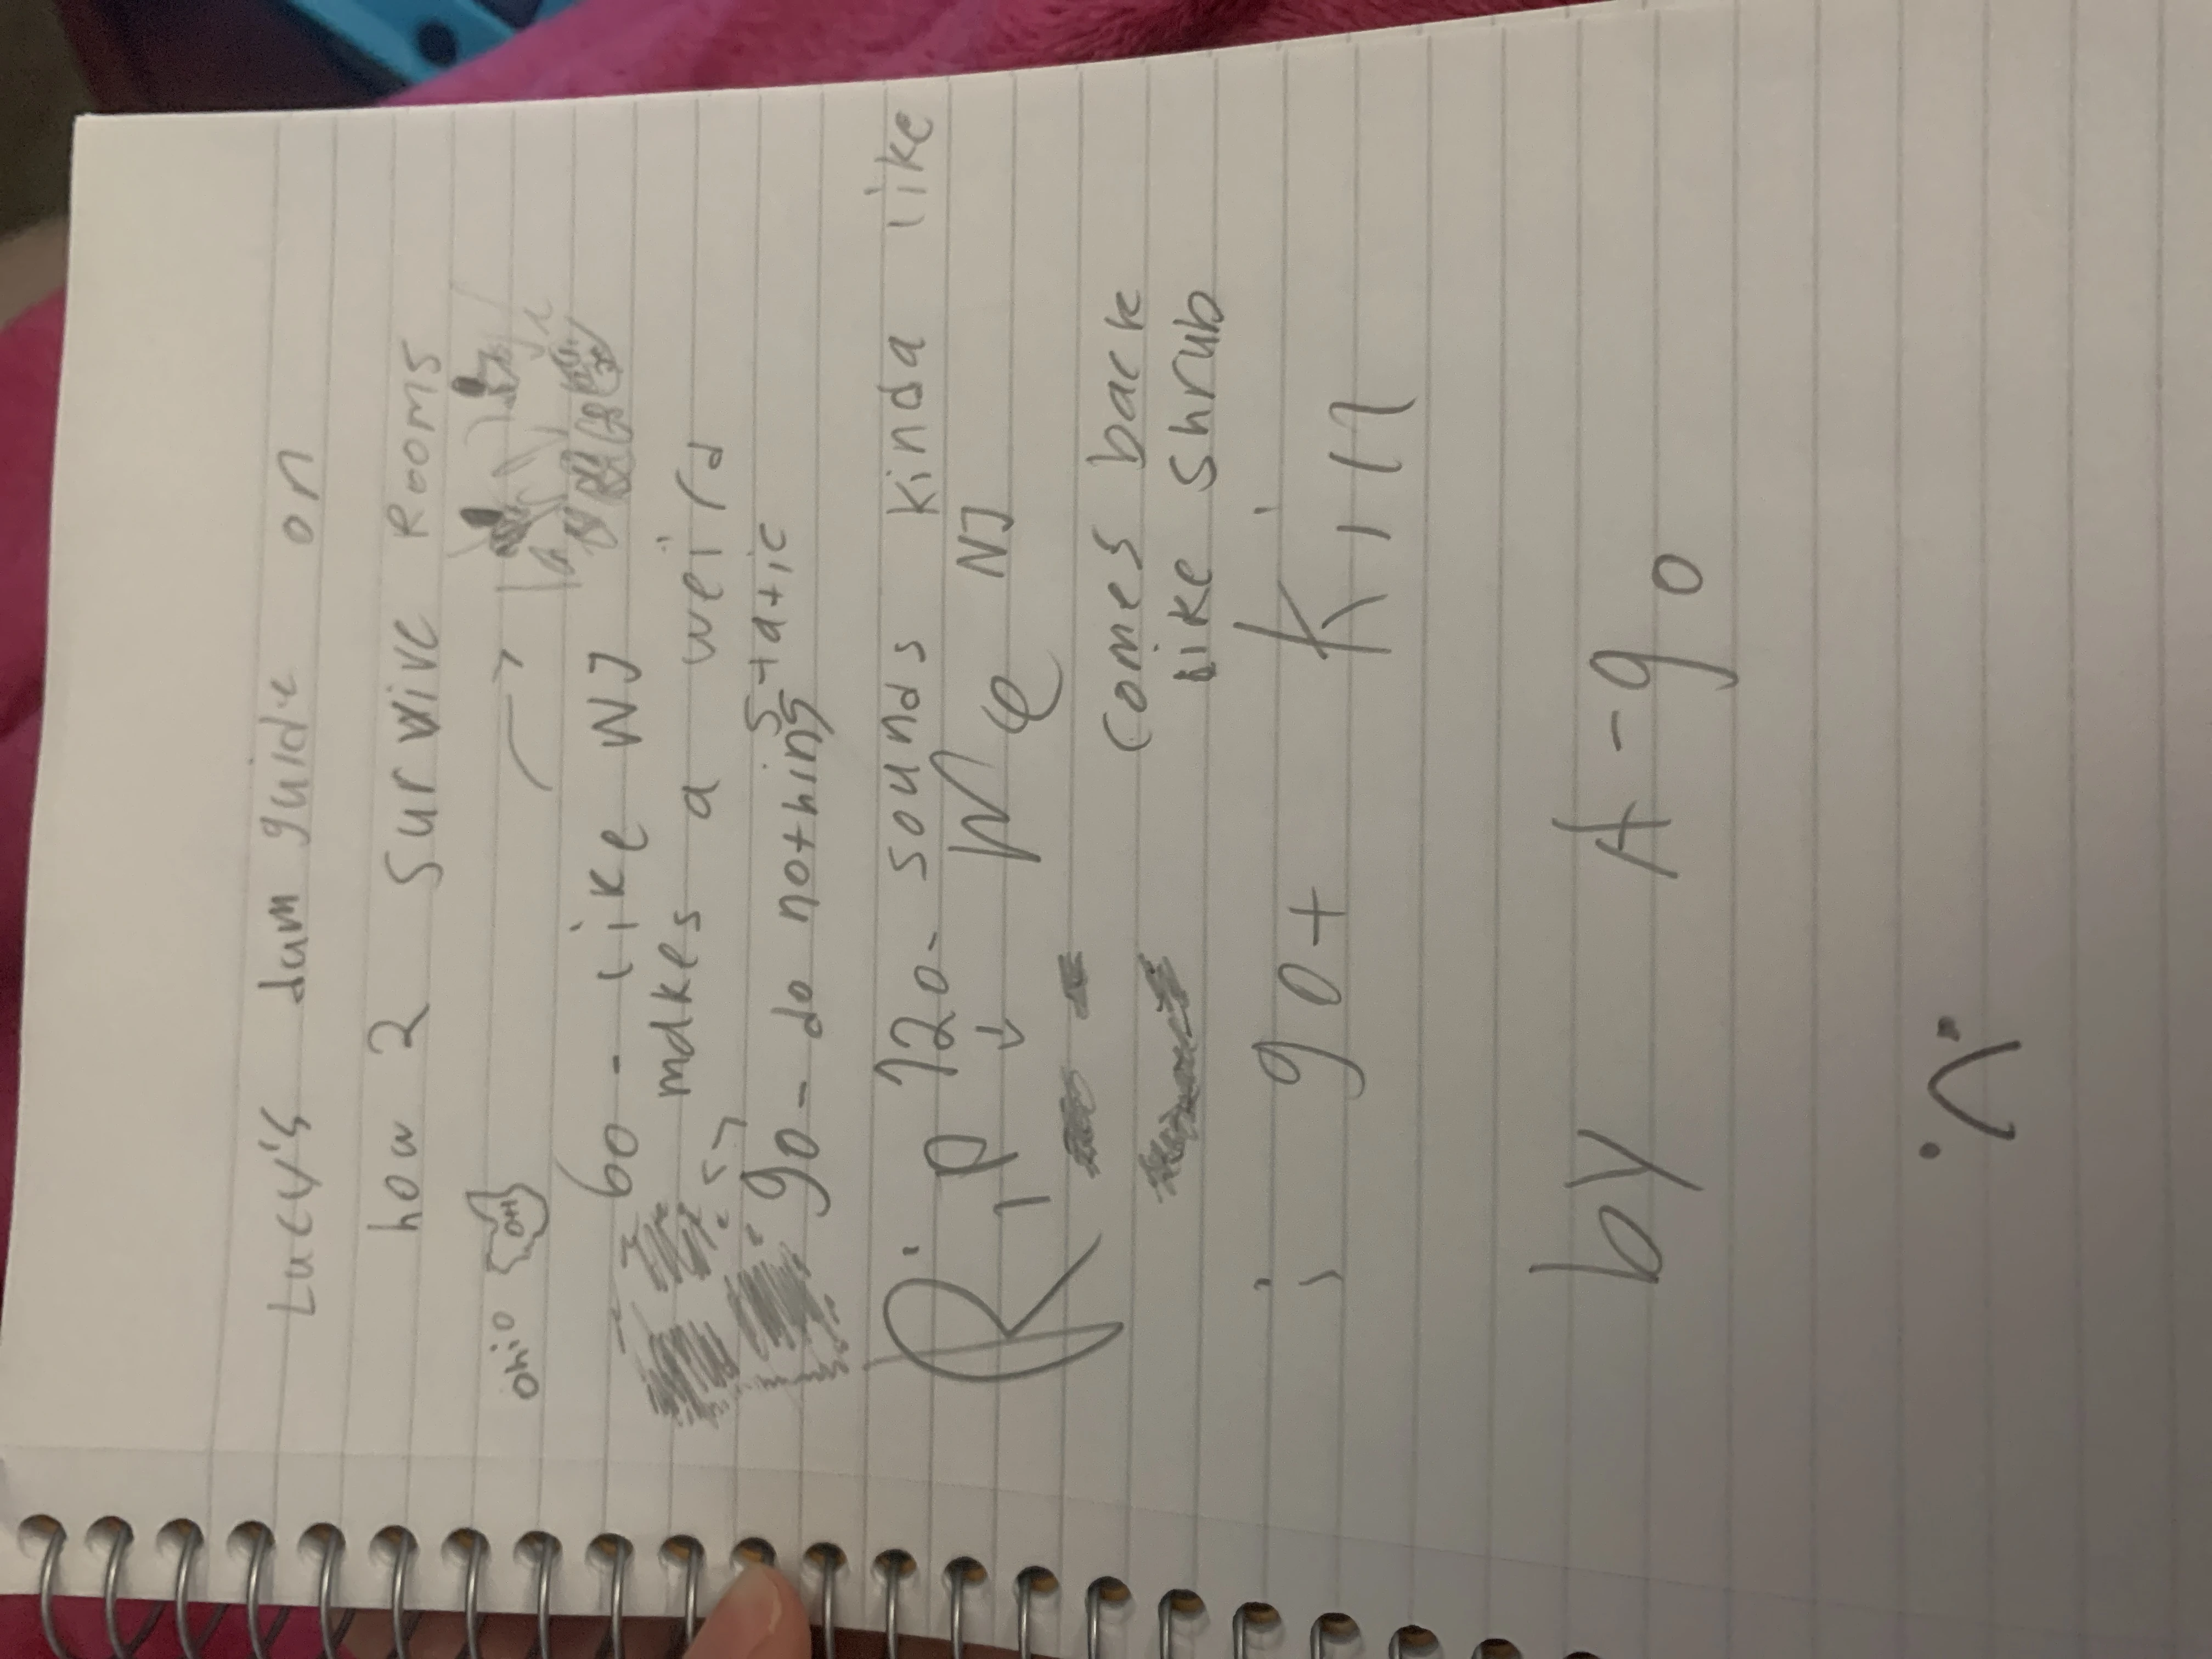 Lucy's dum guide on
how 2 survive Rooms
ohio OH
60 - like WJ
makes a weird
static
90 - do nothing
120 - sounds kinda like
Rip me NJ
comes back
like shrub
i got kill
by A-90